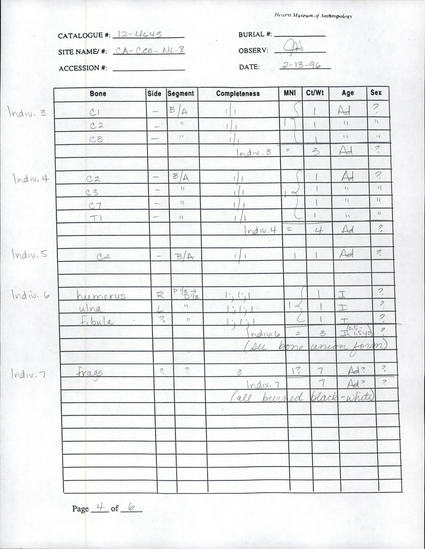 Hearst Museum of Anthropology
CATALOGUE #: 12-4643 BURIAL #:
SITE NAME/ #: CA-CCO-NL-8 OBSERV:
ACCESSION #: DATE: 2-13-96
Bone Side Segment Completeness MNI Ct/Wt Age Sex
Indiv. 3 C1 — B/A 1/1 1 Ad ?
C2 — " 1/1 1 1 " "
C3 — " 1/1 1 " "
Indiv. 3 = 3 Ad ?
Indiv. 4 C2 — B/A 1/1 1 Ad ?
C3 — " 1/1 1 1 " "
C7 — " 1/1 1 " "
T1 — " 1/1 1 " "
Indiv. 4 = 4 Ad ?
Indiv. 5 C2 — B/A 1/1 1 1 Ad ?
Indiv. 6 humerus R 1;1;1 1 I ?
ulna L " 1;1;1 1 1 I "
fibula ? " 1;1;1 1 I "
Indiv 6 = 3 I ?
(see bone union form)
Indiv. 7 frags ? ? 3 1? 7 Ad? ?
Indiv. 7 7 Ad? ?
(all burned black-white)
Page 4 of 6